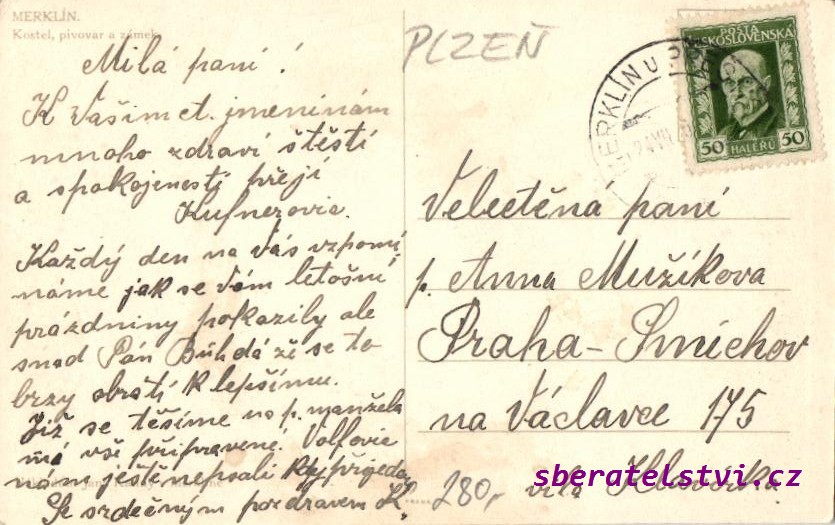 MERKLÍN.
Kostel, pivovar a zámek
Milá paní!
K Vašim ct. jmeninám
mnoho zdraví štěstí
a spokojenosti přejí
Kufnerovic.
Každý den na Vás vzpomí-
náme jak se Vám letošní
prázdniny pokazily ale
snad Pán Bůh dá že se to
brzy obrátí k lepšímu.
Již se těšíme na p. manžela
má vše připravené. Volfovic
nám ještě nepsali kdy přijedou
Se srdečným pozdravem K.
PLZEŇ
POŠTA
ČESKOSLOVENSKÁ
50 HALÉŘŮ 50
MERKLÍN U
Velectěná paní
p. Anna Mužíkova
Praha-Smíchov
na Václavce 175
vila Hlavovka
280,-
sberatelstvi.cz